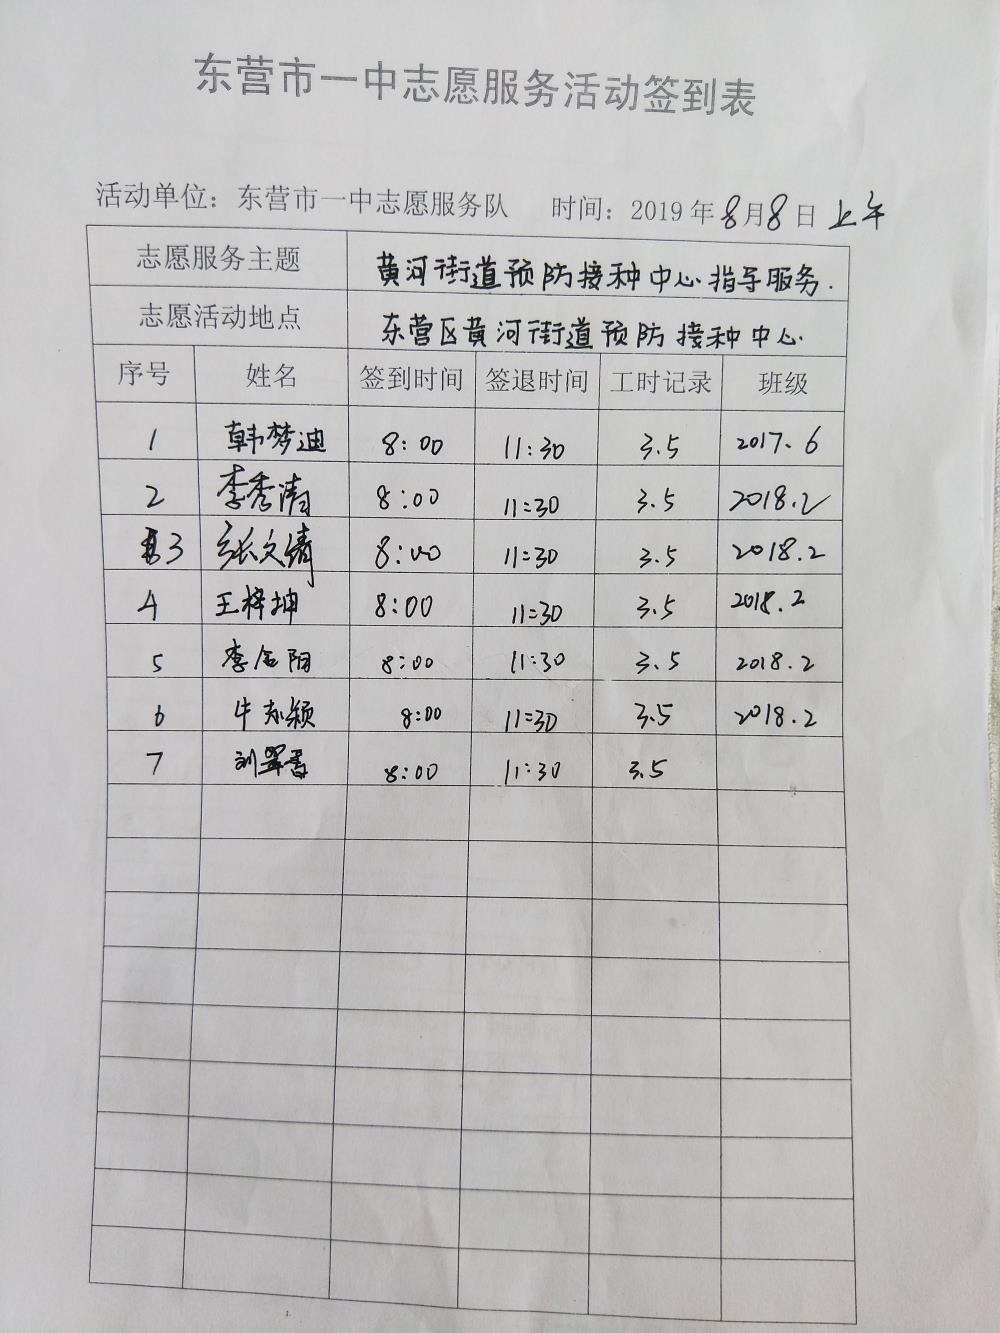 东营市一中志愿服务活动签到表
活动单位：东营市一中志愿服务队 时间：2019年8月8日上午
志愿服务主题 黄河街道预防接种中心指导服务.
志愿活动地点 东营区黄河街道预防接种中心.
序号 姓名 签到时间 签退时间 工时记录 班级
1 韩梦迪 8:00 11:30 3.5 2017.6
2 李秀清 8:00 11:30 3.5 2018.2
3 张文倩 8:00 11:30 3.5 2018.2
4 王梓坤 8:00 11:30 3.5 2018.2
5 李金阳 8:00 11:30 3.5 2018.2
6 牛志颖 8:00 11:30 3.5 2018.2
7 8:00 11:30 3.5